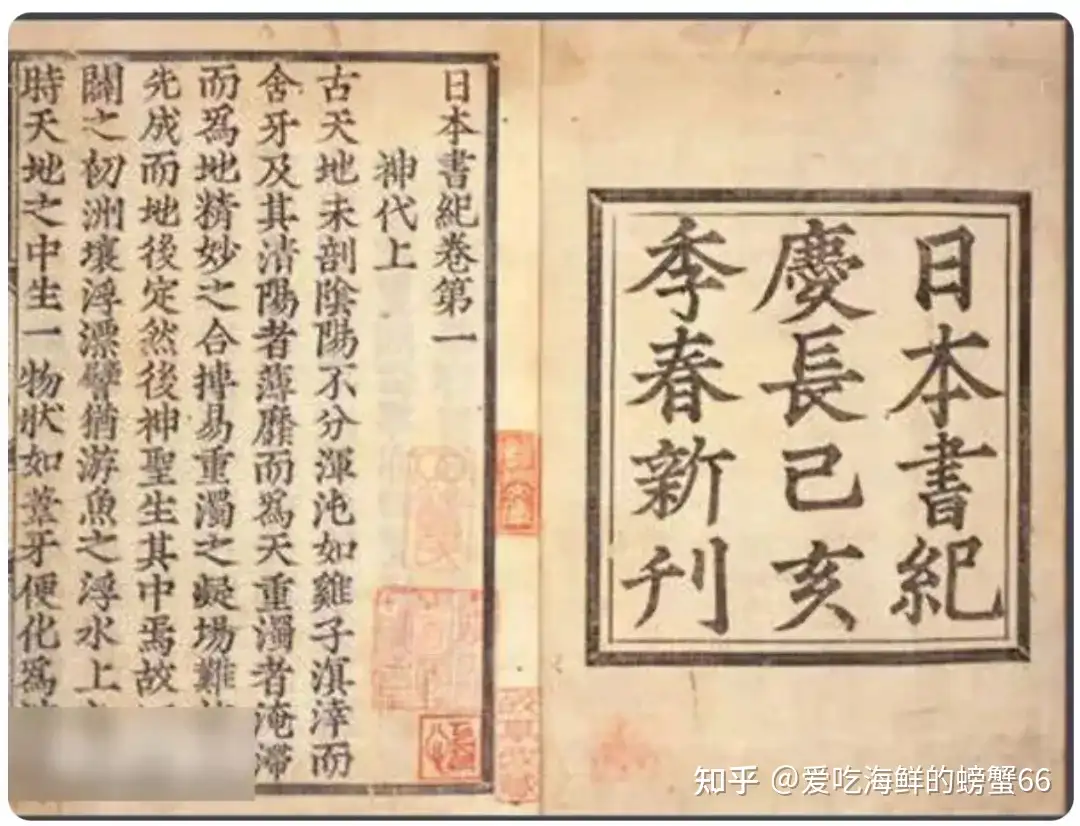 日本書紀
慶長己亥
季春新刊
日本書紀卷第一
神代上
古天地未剖陰陽不分渾沌如雞子溟涬而
含牙及其清陽者薄靡而爲天重濁者淹滯
而爲地精妙之合摶易重濁之凝場難
先成而地後定然後神聖生其中焉故
闢之初洲壤浮漂譬猶游魚之浮水上
時天地之中生一物狀如葦牙便化爲
知乎 @爱吃海鲜的螃蟹66